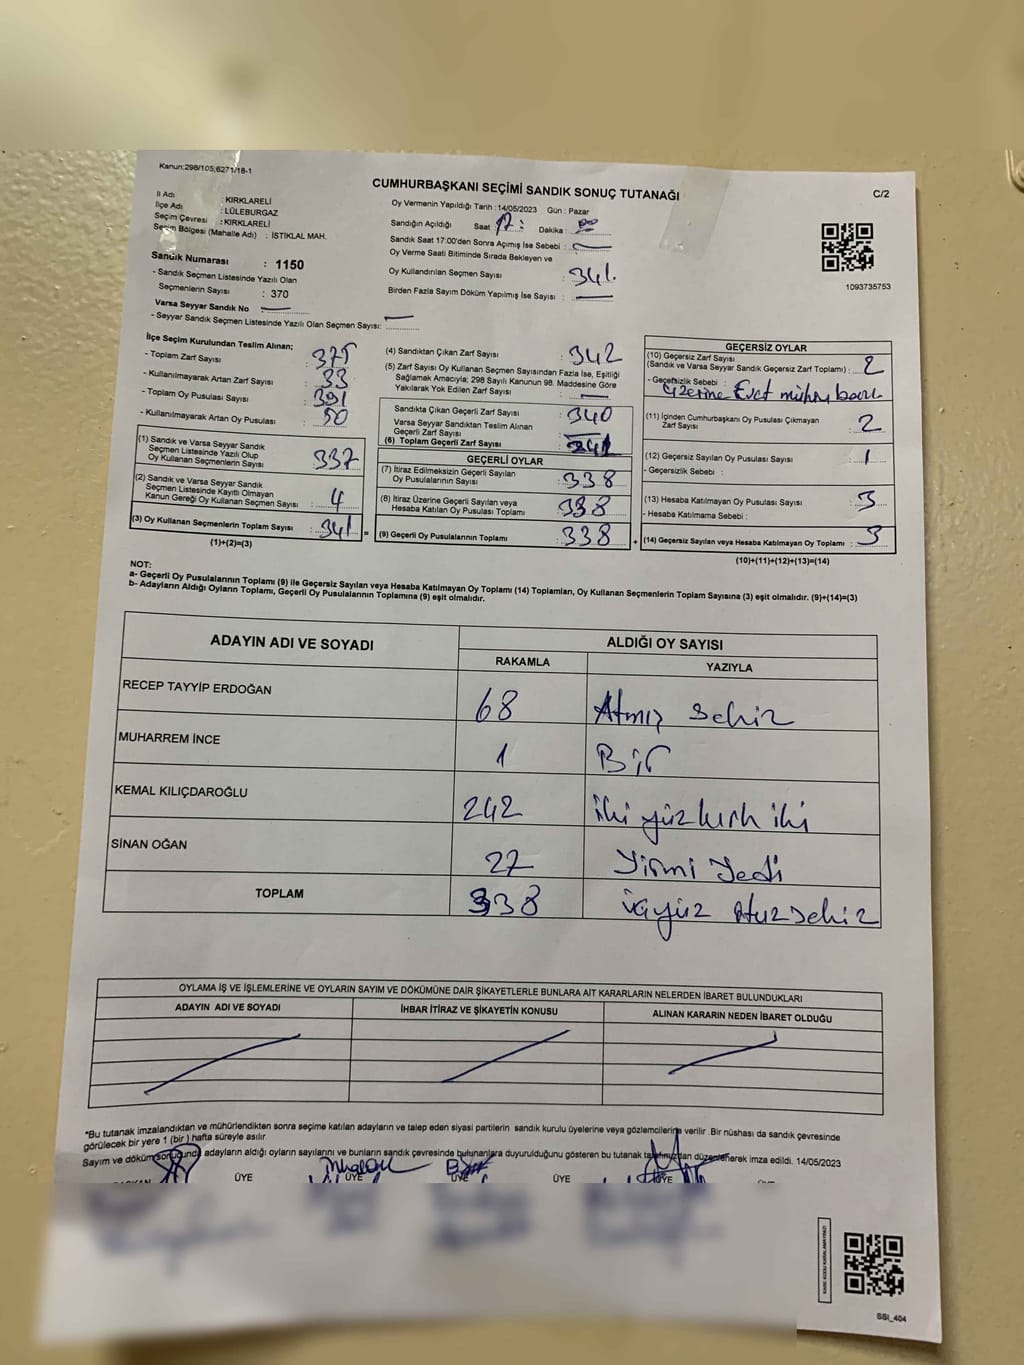 Kanun:298/105,6271/18-1
CUMHURBAŞKANI SEÇİMİ SANDIK SONUÇ TUTANAĞI
C/2
İl Adı : KIRKLARELİ
İlçe Adı : LÜLEBURGAZ
Seçim Çevresi : KIRKLARELİ
Seçim Bölgesi (Mahalle Adı) : İSTİKLAL MAH.
Sandık Numarası : 1150
- Sandık Seçmen Listesinde Yazılı Olan
Seçmenlerin Sayısı : 370
Varsa Seyyar Sandık No :
- Seyyar Sandık Seçmen Listesinde Yazılı Olan Seçmen Sayısı:
Oy Vermenin Yapıldığı Tarih : 14/05/2023 Gün : Pazar
Sandığın Açıldığı Saat 17 : Dakika : 00
Sandık Saat 17:00'den Sonra Açımış İse Sebebi :
Oy Verme Saati Bitiminde Sırada Bekleyen ve
Oy Kullandırılan Seçmen Sayısı : 341
Birden Fazla Sayım Döküm Yapılmış İse Sayısı :
1093735753
İlçe Seçim Kurulundan Teslim Alınan;
- Toplam Zarf Sayısı : 375
- Kullanılmayarak Artan Zarf Sayısı : 33
- Toplam Oy Pusulası Sayısı : 391
- Kullanılmayarak Artan Oy Pusulası : 50
(1) Sandık ve Varsa Seyyar Sandık
Seçmen Listesinde Yazılı Olup
Oy Kullanan Seçmenlerin Sayısı : 337
(2) Sandık ve Varsa Seyyar Sandık
Seçmen Listesinde Kayıtlı Olmayan
Kanun Gereği Oy Kullanan Seçmen Sayısı : 4
(3) Oy Kullanan Seçmenlerin Toplam Sayısı : 341
(1)+(2)=(3)
(4) Sandıktan Çıkan Zarf Sayısı : 342
(5) Zarf Sayısı Oy Kullanan Seçmen Sayısından Fazla İse, Eşitliği
Sağlamak Amacıyla; 298 Sayılı Kanunun 98. Maddesine Göre
Yakılarak Yok Edilen Zarf Sayısı :
Sandıkta Çıkan Geçerli Zarf Sayısı : 340
Varsa Seyyar Sandıktan Teslim Alınan
Geçerli Zarf Sayısı :
(6) Toplam Geçerli Zarf Sayısı :
GEÇERLİ OYLAR
(7) İtiraz Edilmeksizin Geçerli Sayılan
Oy Pusulalarının Sayısı : 338
(8) İtiraz Üzerine Geçerli Sayılan veya
Hesaba Katılan Oy Pusulası Toplamı : 338
(9) Geçerli Oy Pusulalarının Toplamı : 338
GEÇERSİZ OYLAR
(10) Geçersiz Zarf Sayısı
(Sandık ve Varsa Seyyar Sandık Geçersiz Zarf Toplamı) : 2
- Geçersizlik Sebebi : üzerine Evet
(11) İçinden Cumhurbaşkanı Oy Pusulası Çıkmayan
Zarf Sayısı : 2
(12) Geçersiz Sayılan Oy Pusulası Sayısı : 1
- Geçersizlik Sebebi :
(13) Hesaba Katılmayan Oy Pusulası Sayısı : 3
- Hesaba Katılmama Sebebi :
(14) Geçersiz Sayılan veya Hesaba Katılmayan Oy Toplamı : 3
(10)+(11)+(12)+(13)=(14)
NOT:
a- Geçerli Oy Pusulalarının Toplamı (9) ile Geçersiz Sayılan veya Hesaba Katılmayan Oy Toplamı (14) Toplamları, Oy Kullanan Seçmenlerin Toplam Sayısına (3) eşit olmalıdır. (9)+(14)=(3)
b- Adayların Aldığı Oyların Toplamı, Geçerli Oy Pusulalarının Toplamına (9) eşit olmalıdır.
ADAYIN ADI VE SOYADI ALDIĞI OY SAYISI
RAKAMLA YAZIYLA
RECEP TAYYİP ERDOĞAN 68 Atmış Sekiz
MUHARREM İNCE 1 Bir
KEMAL KILIÇDAROĞLU 242 iki yüz kırk iki
SİNAN OĞAN 27 Yirmi Yedi
TOPLAM 338 üçyüz otuz sekiz
OYLAMA İŞ VE İŞLEMLERİNE VE OYLARIN SAYIM VE DÖKÜMÜNE DAİR ŞİKAYETLERLE BUNLARA AİT KARARLARIN NELERDEN İBARET BULUNDUKLARI
ADAYIN ADI VE SOYADI İHBAR İTİRAZ VE ŞİKAYETİN KONUSU ALINAN KARARIN NEDEN İBARET OLDUĞU
*Bu tutanak imzalandıktan ve mühürlendikten sonra seçime katılan adayların ve talep eden siyasi partilerin sandık kurulu üyelerine veya gözlemcilerine verilir .Bir nüshası da sandık çevresinde
görülecek bir yere 1 (bir ) hafta süreyle asılır
Sayım ve döküm sonucunda adayların aldığı oyların sayılarını ve bunların sandık çevresinde bulunanlara duyurulduğunu gösteren bu tutanak tarafımızdan düzenlenerek imza edildi. 14/05/2023
ÜYE ÜYE ÜYE ÜYE ÜYE
SSI_404